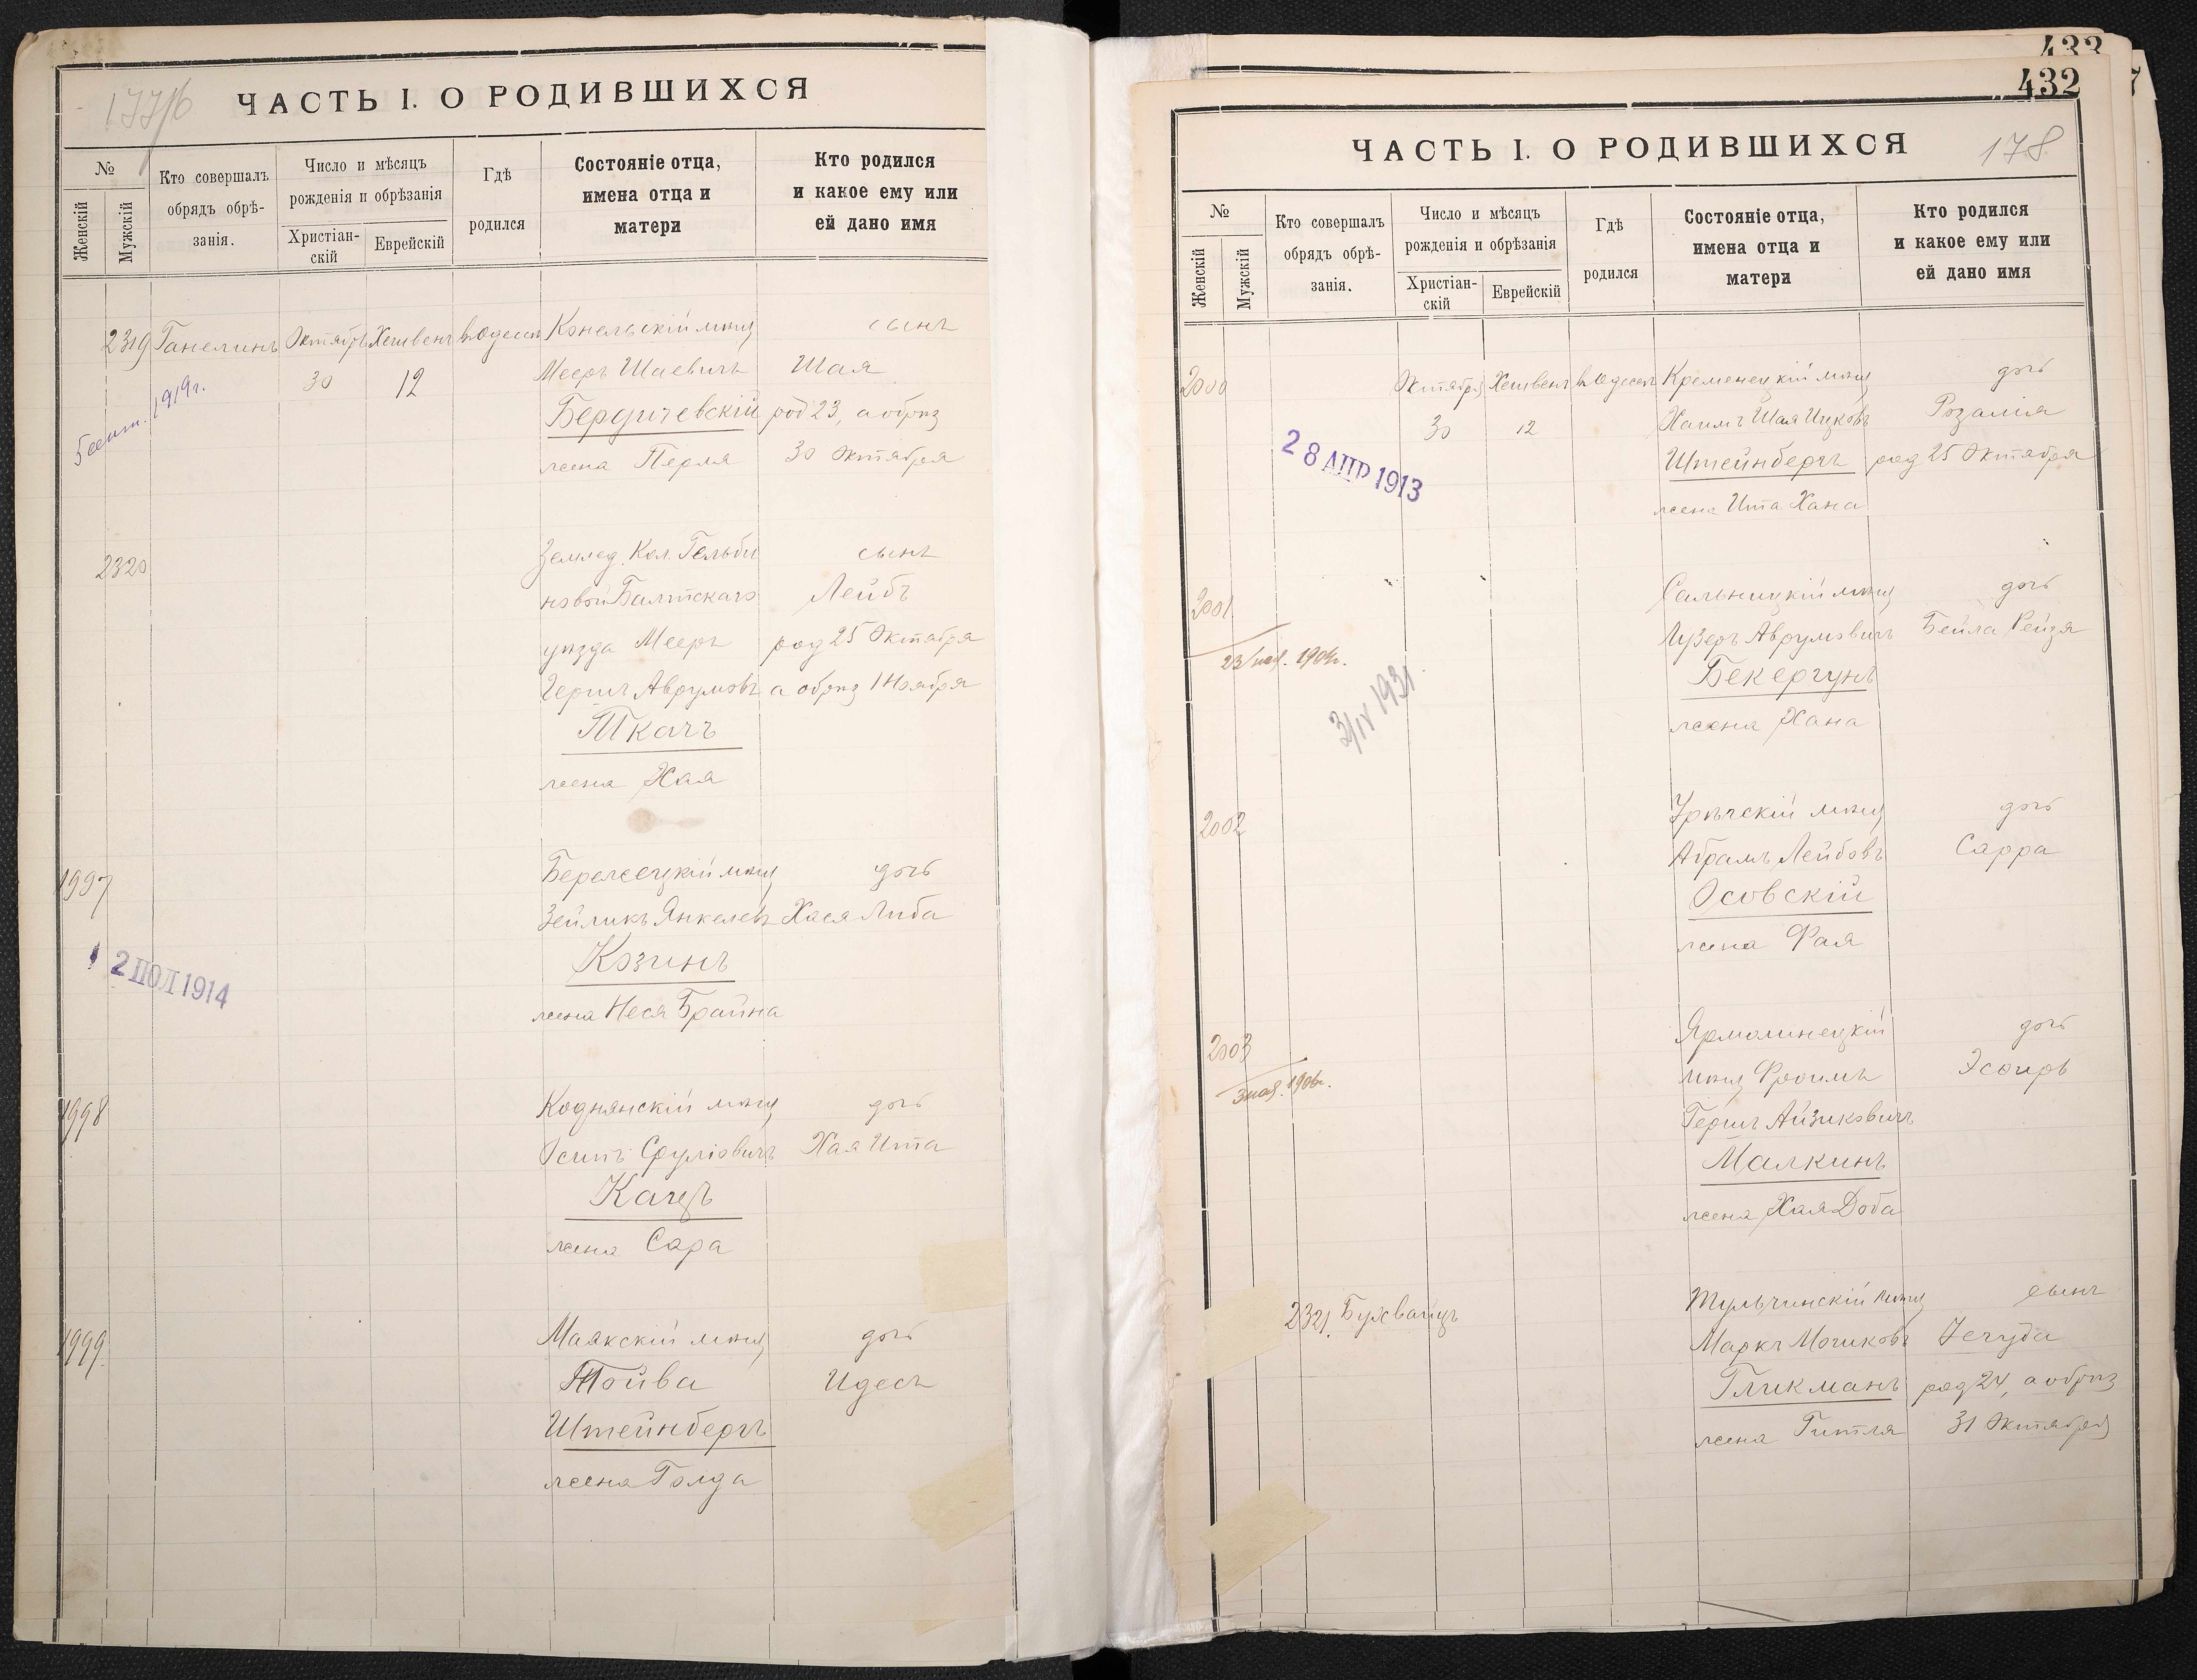 177/б
ЧАСТЬ I. О РОДИВШИХСЯ
№
Женскій
Мужскій
Кто совершалъ
обрядъ обрѣ-
занія.
Число и мѣсяцъ
рожденія и обрѣзанія
Христіан-
скій
Еврейскій
Гдѣ
родился
Состояніе отца,
имена отца и
матери
Кто родился
и какое ему или
ей дано имя
2319 Ганелинъ Октябрь Хешвенъ въ Одессѣ Конельскій мѣщ сынъ
30 12 Мееръ Шаевичъ Шая
5 сент. 1919г.
Бердичевскій род 23, а обрѣз
жена Перля 30 Октября
2320 Землед. Кол. Гельби сынъ
новой Балтскаго Лейбъ
уѣзда Мееръ род 25 Октября
Гершъ Аврумовъ а обрѣз 1 Ноября
Ткачъ
жена Хая
1997 Бережецкій мѣщ дочь
Зейликъ Янкелевъ Хася Либа
Козинъ
2 ІЮЛ 1914
жена Неся Брайна
1998 Коднянскій мѣщ дочь
Осипъ Сруліовичъ Хая Ита
Кацъ
жена Сара
1999 Маякскій мѣщ дочь
Тойва Идесъ
Штейнбергъ
жена Голда
433
432
178
ЧАСТЬ I. О РОДИВШИХСЯ
№
Женскій
Мужскій
Кто совершалъ
обрядъ обрѣ-
занія.
Число и мѣсяцъ
рожденія и обрѣзанія
Христіан-
скій
Еврейскій
Гдѣ
родился
Состояніе отца,
имена отца и
матери
Кто родился
и какое ему или
ей дано имя
2000 Октябрь Хешвенъ въ Одессѣ Кременецкій мѣщ дочь
30 12 Хаимъ Шая Ицковъ Розалія
28 АПР 1913
Штейнбергъ род 25 Октября
жена Ита Хана
2001 Сальницкій мѣщ дочь
Лузеръ Аврумовичъ Бейла Рейзя
1904г.
Бекергунъ
3/IV 1931
жена Хана
2002 мѣщ дочь
Абрамъ Лейбовъ Сарра
Осовскій
жена Фая
2003 Ярмолинецкій дочь
мѣщ Фроимъ Эсѳирь
1906г.
Гершъ Айзиковичъ
Малкинъ
жена Хая Доба
2321 Бухвайцъ Тульчинскій мѣщ сынъ
Маркъ Мошковъ Іегуда
Гликманъ род 24, а обрѣз
жена Гитля 31 Октября